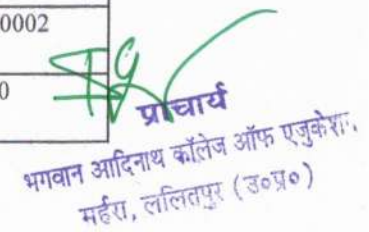 0002
0
प्राचार्य
भगवान आदिनाथ कॉलेज ऑफ एजुकेशन
महर्रा, ललितपुर (उ०प्र०)